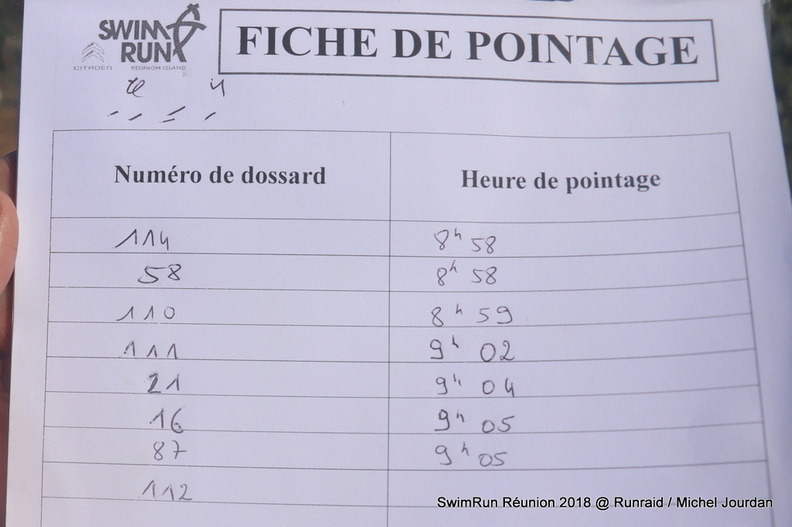 SWIM RUN
CITROËN RÉUNION ISLAND
FICHE DE POINTAGE
Numéro de dossard Heure de pointage
114 8h 58
58 8h 58
110 8h 59
111 9h 02
21 9h 04
16 9h 05
87 9h 05
112
SwimRun Réunion 2018 @ Runraid / Michel Jourdan